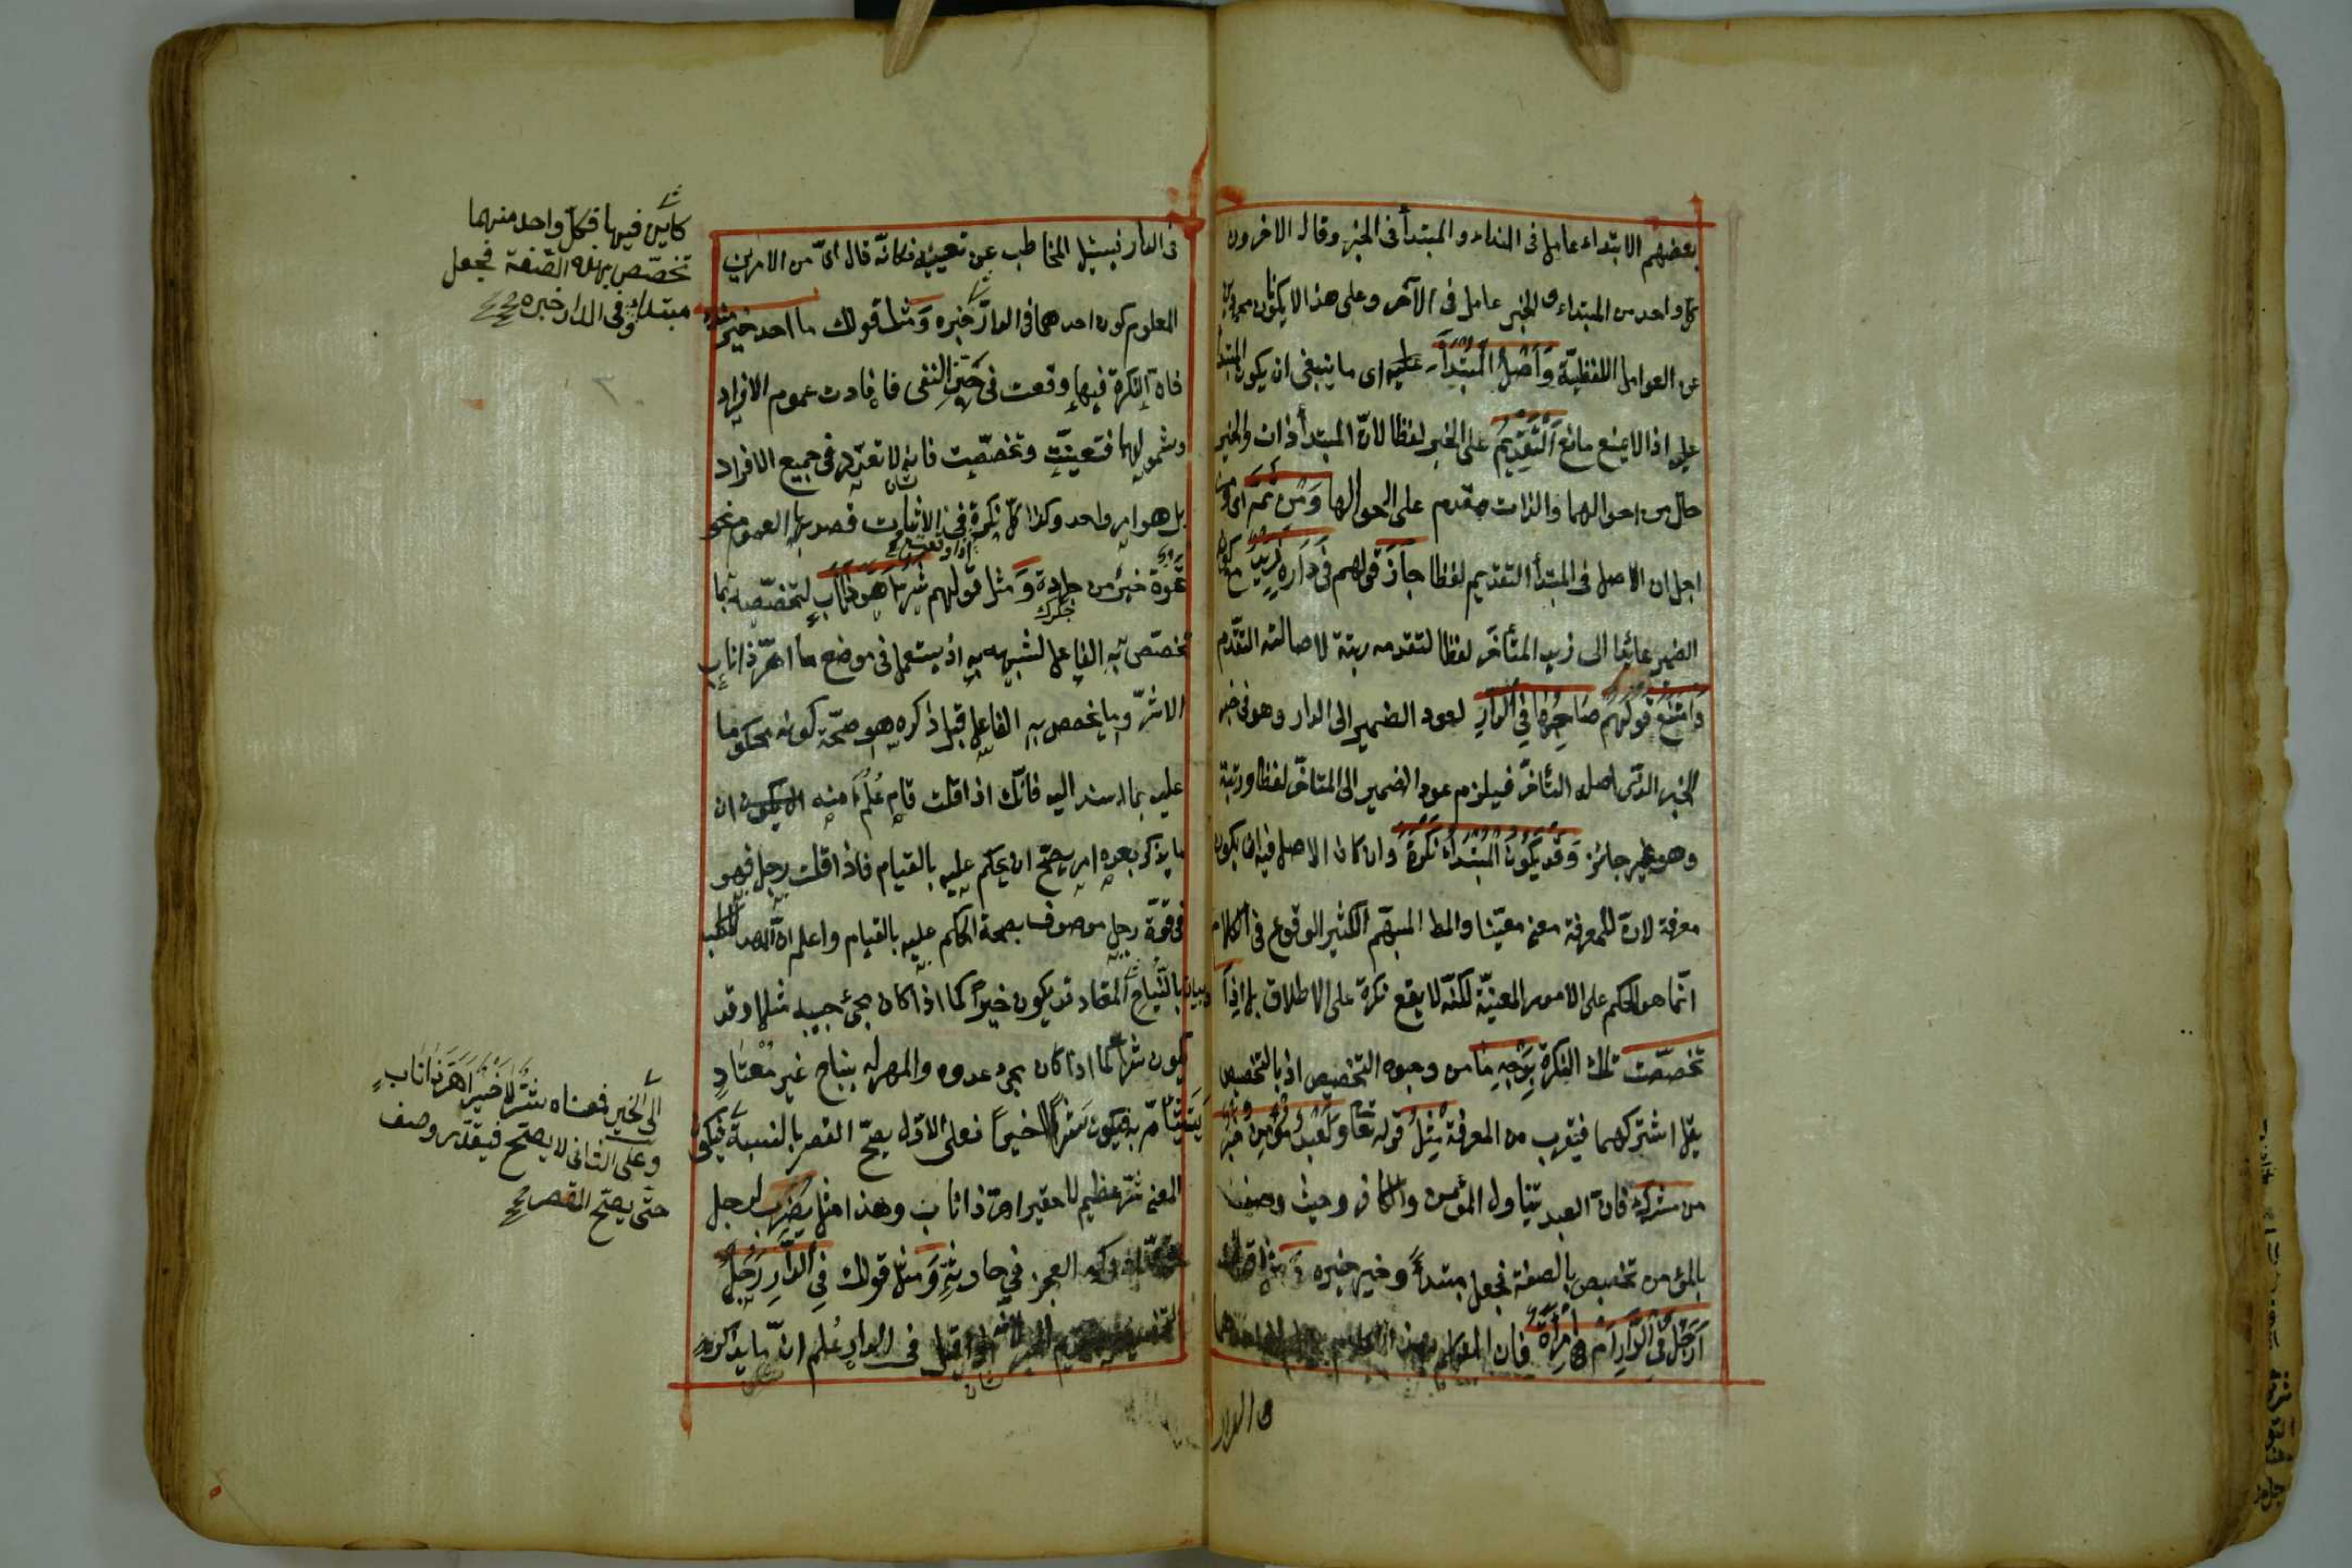 بعضهم الابتداء عامل فى المبتداء والمبتدأ فى الخبر وقال الاخرون
كل واحد من المبتداء والخبر عامل فى الآخر وعلى هذا لا يكونان مجردين
عن العوامل اللفظيّة وَأَصْلُ الْمُبْتَدَأِ اى ما ينبغى ان يكون المبتدأ
عليه اذا لم يمنع مانع اَلتَّقْدِيمُ على الخبر لفظا لانّ المبتدأ ذات والخبر
حال من احوالها والذات مقدم على احوالها وَمِن ثَمَّ اى ومن
اجل ان الاصل فى المبتدأ التقديم لفظا جازَ قولهم فِى دَارِهِ زَيْدٌ مع كون
الضمير عائدا الى زيد المتأخر لفظا لتقدمه رتبة لاصالته التقدّم
وَامْتَنَعَ قولهُم صَاحِبُهَا فِي الدَّارِ لعود الضمير الى الدار وهو فى حيز
الخبر الذى اصله التأخّر فيلزم عود الضمير الى المتأخر لفظا ورتبة
وهو غير جائز وَقَدْ يَكُونُ الْمُبْتَدَأُ نَكِرَةً وان كان الاصل فيه ان يكون
معرفة لانّ للمعرفة معنى معيّنا والمط المبهم الكثير الوقوع فى الكلام
انّما هو الحكم على الامور المعيّنة لكنّه لا يقع نكرة على الاطلاق بل اِذَا
تخصّصت تلك النكرة بِوَجْهٍ مَّا من وجوه التخصيص اذ بالتخصيص
يقل اشتراكها فيقرب من المعرفة مِثْلُ قوله تعا وَلَعَبْدٌ مُؤْمِنٌ خَيْرٌ
من مشرك فانّ العبد يتناول المؤمن والكافر وحيث وصف
بالمؤمن تخصص بالصفة فجعل مبتدأً وخير خبره وَمثل قولك
أَرَجُلٌ فِي الدَّارِ أَمْ امْرَأَةٌ فان المتكلم بهذا الكلام يعلم ان احدهما
فى الدار
فى الدار فيسئل المخاطب عن تعيينه فكانّه قال اىّ من الامرين
المعلوم كون احدهما فى الدار خبره وَمثل قولك ما احد خير منك
فانّ النكرة فيها وقعت فى حيّز النفى فافادت عموم الافراد
وشمولها فتعيّنت وتخصّصت فانه لا تعدّد فى جميع الافراد
بل هو امر واحد وكذا كلّ نكرة فى الاثبات قصد بها العموم نحو
تمرة خير من جرادة وَمثل قولهم شَرٌّ اَهَرَّ ذَا نَابٍ لتخصّصه بما
تخصّص به الفاعل لشبهه به اذ يستعمل فى موضع ما اهرّ ذا ناب
الا شرّ وما يخصص به الفاعل قبل ذكره هو صحّة كونه محكوما
عليه بما اسند اليه فانّك اذا قلت قام عُلم منه ان
ما يذكر بعده امر يصحّ ان يحكم عليه بالقيام فاذا قلت رجل فهو
فى قوّة رجل موصوف بصحة الحكم عليه بالقيام واعلم انّ المهر للكلب
بالنّباح المعتاد قد يكون خيرًا كما اذا كان مجئ حبيب مثلا وقد
يكون شرًا كما اذا كان مجئ عدوه والمهر له بنباح غير مُعْتَادٍ
يَتَشَأّم به فيكون شرًا لا خيرًا فعلى الاوّل يصحّ القصر بالنسبة
المعنى شرّ عظيم لا حقير اهرّ ذا ناب وهذا مثل يضرب لرجل
ادركه العجز فى حادثةٍ وَمثل قولك فِي الدَّارِ رَجُلٌ
فى الدار عُلم انّ ما يذكره
كائن فيها فكلّ واحد منهما
تخصّص بهذه الصّفة فجعل
مبتداء وفى الدار خبره
الى الخير فمعناه شَرٌّ لا خَيْرٌ اَهَرَّ ذَا نَابٍ
وعلى الثانى لا يصحّ فيقدّر وصف
حتّى يصحّ القصر